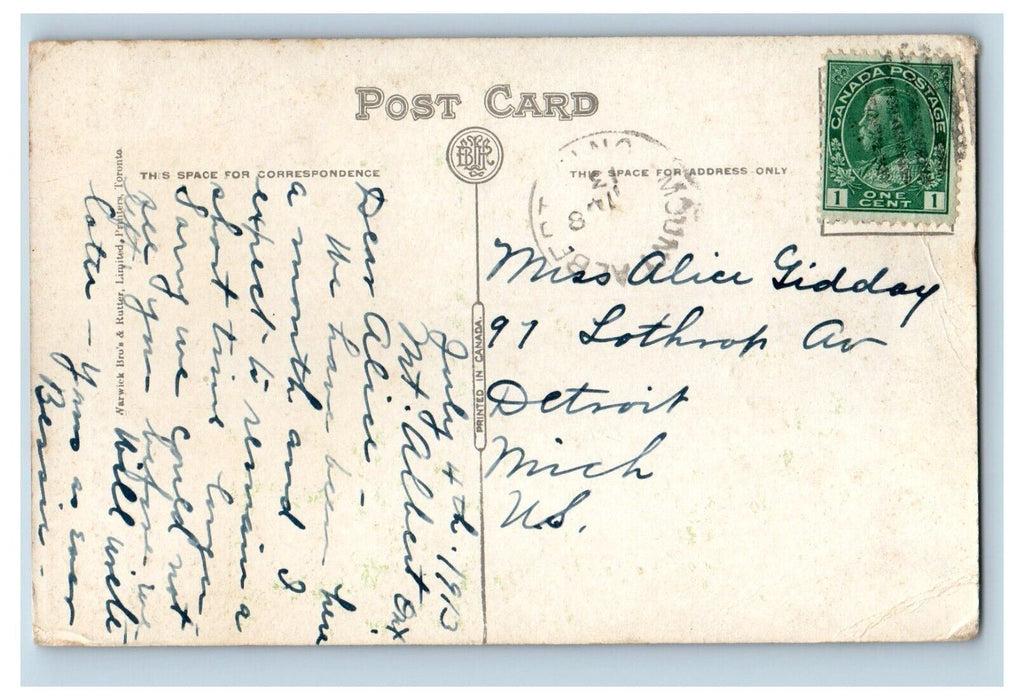 POST CARD
THIS SPACE FOR CORRESPONDENCE
THIS SPACE FOR ADDRESS ONLY
CANADA POSTAGE
1 ONE CENT 1
MOUNT ALBERT
ONT
8
PRINTED IN CANADA.
Warwick Bro's & Rutter, Limited, Printers, Toronto
July 4th. 1913
Mt. Albert Ont
Dear Alice –
We have been here
a month and I
expect to remain a
short time longer
Sorry we could not
see you before we
left Will write
Later – Yours as ever
Miss Alice Gidday
97 Lothrop Av
Detroit
Mich
U.S.